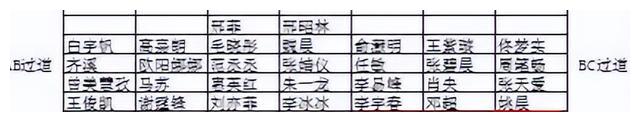 邢菲 邢昭林
白宇帆 高嘉朗 毛晓彤 魏晨 俞灏明 王紫璇 佟梦实
AB过道 齐溪 欧阳娜娜 范丞丞 张婧仪 任敏 张碧晨 周笔畅 BC过道
曾美慧孜 马苏 惠英红 朱一龙 李易峰 肖央 张天爱
王俊凯 谢霆锋 刘亦菲 李冰冰 李宇春 邓超 姚晨